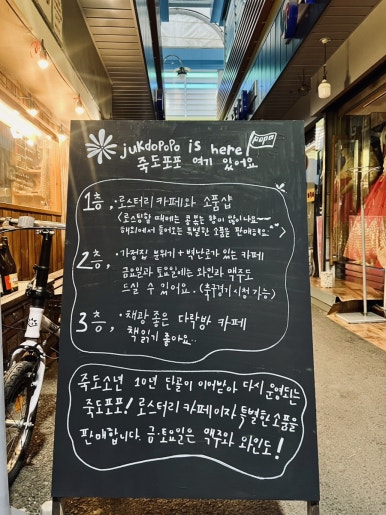 jukdopopo is here!
POPO
죽도포포 여기 있어요
1층, · 로스터리 카페와 소품샵
<로스팅할 때에는 콩 볶는 향이 많이 나요~
해외에서 들여오는 특별한 소품을 판매해요! ^^>
2층, · 가정집 분위기 + 벽난로가 있는 카페
금요일과 토요일에는 와인과 맥주도
드실 수 있어요. (축구경기 시청 가능)
3층, · 채광 좋은 다락방 카페
책읽기 좋아요..
죽도소년 10년 단골이 이어받아 다시 운영되는
죽도포포! 로스터리 카페이자 특별한 소품을
판매합니다. 금·토요일은 맥주와 와인도!